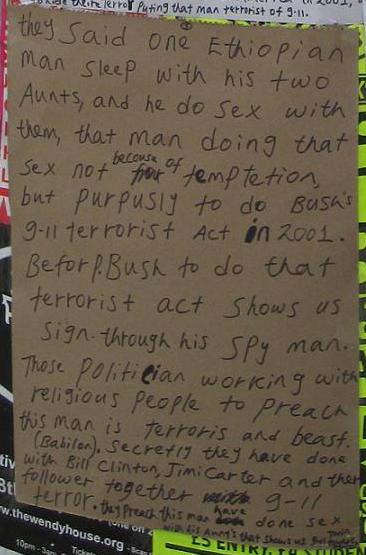 their Terror Puting that man terrorist of 9-11.
in 2001,
they said one Ethiopian
man sleep with his two
Aunts, and he do sex with
them, that man doing that
sex not because of temptetion,
but purpusly to do Bush's
9-11 terrorist Act in 2001.
Befor P.Bush to do that
terrorist act shows us
sign. through his spy man..
Those politician working with
religious people to preach
this man is terroris and beast.
(Babilon). Secretly they have done
with Bill Clinton, Jimi Carter and ther
follower together 9-11
terror. they preach this man have done sex
with his Aunt's that shows us
www.thewendyhouse.org
10pm -